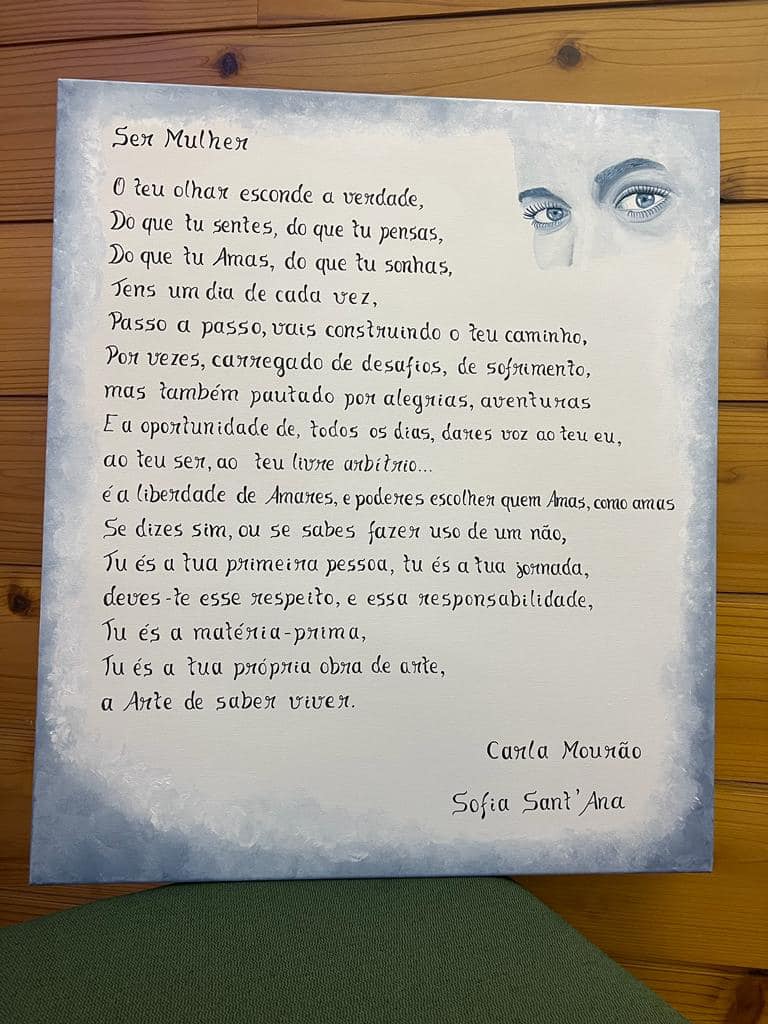 Ser Mulher
O teu olhar esconde a verdade,
Do que tu sentes, do que tu pensas,
Do que tu Amas, do que tu sonhas,
Tens um dia de cada vez,
Passo a passo, vais construindo o teu caminho,
Por vezes, carregado de desafios, de sofrimento,
mas também pautado por alegrias, aventuras
E a oportunidade de, todos os dias, dares voz ao teu eu,
ao teu ser, ao teu livre arbítrio...
é a liberdade de Amares, e poderes escolher quem Amas, como amas
Se dizes sim, ou se sabes fazer uso de um não,
Tu és a tua primeira pessoa, tu és a tua jornada,
deves-te esse respeito, e essa responsabilidade,
Tu és a matéria-prima,
Tu és a tua própria obra de arte,
a Arte de saber viver.
Carla Mourão
Sofia Sant'Ana